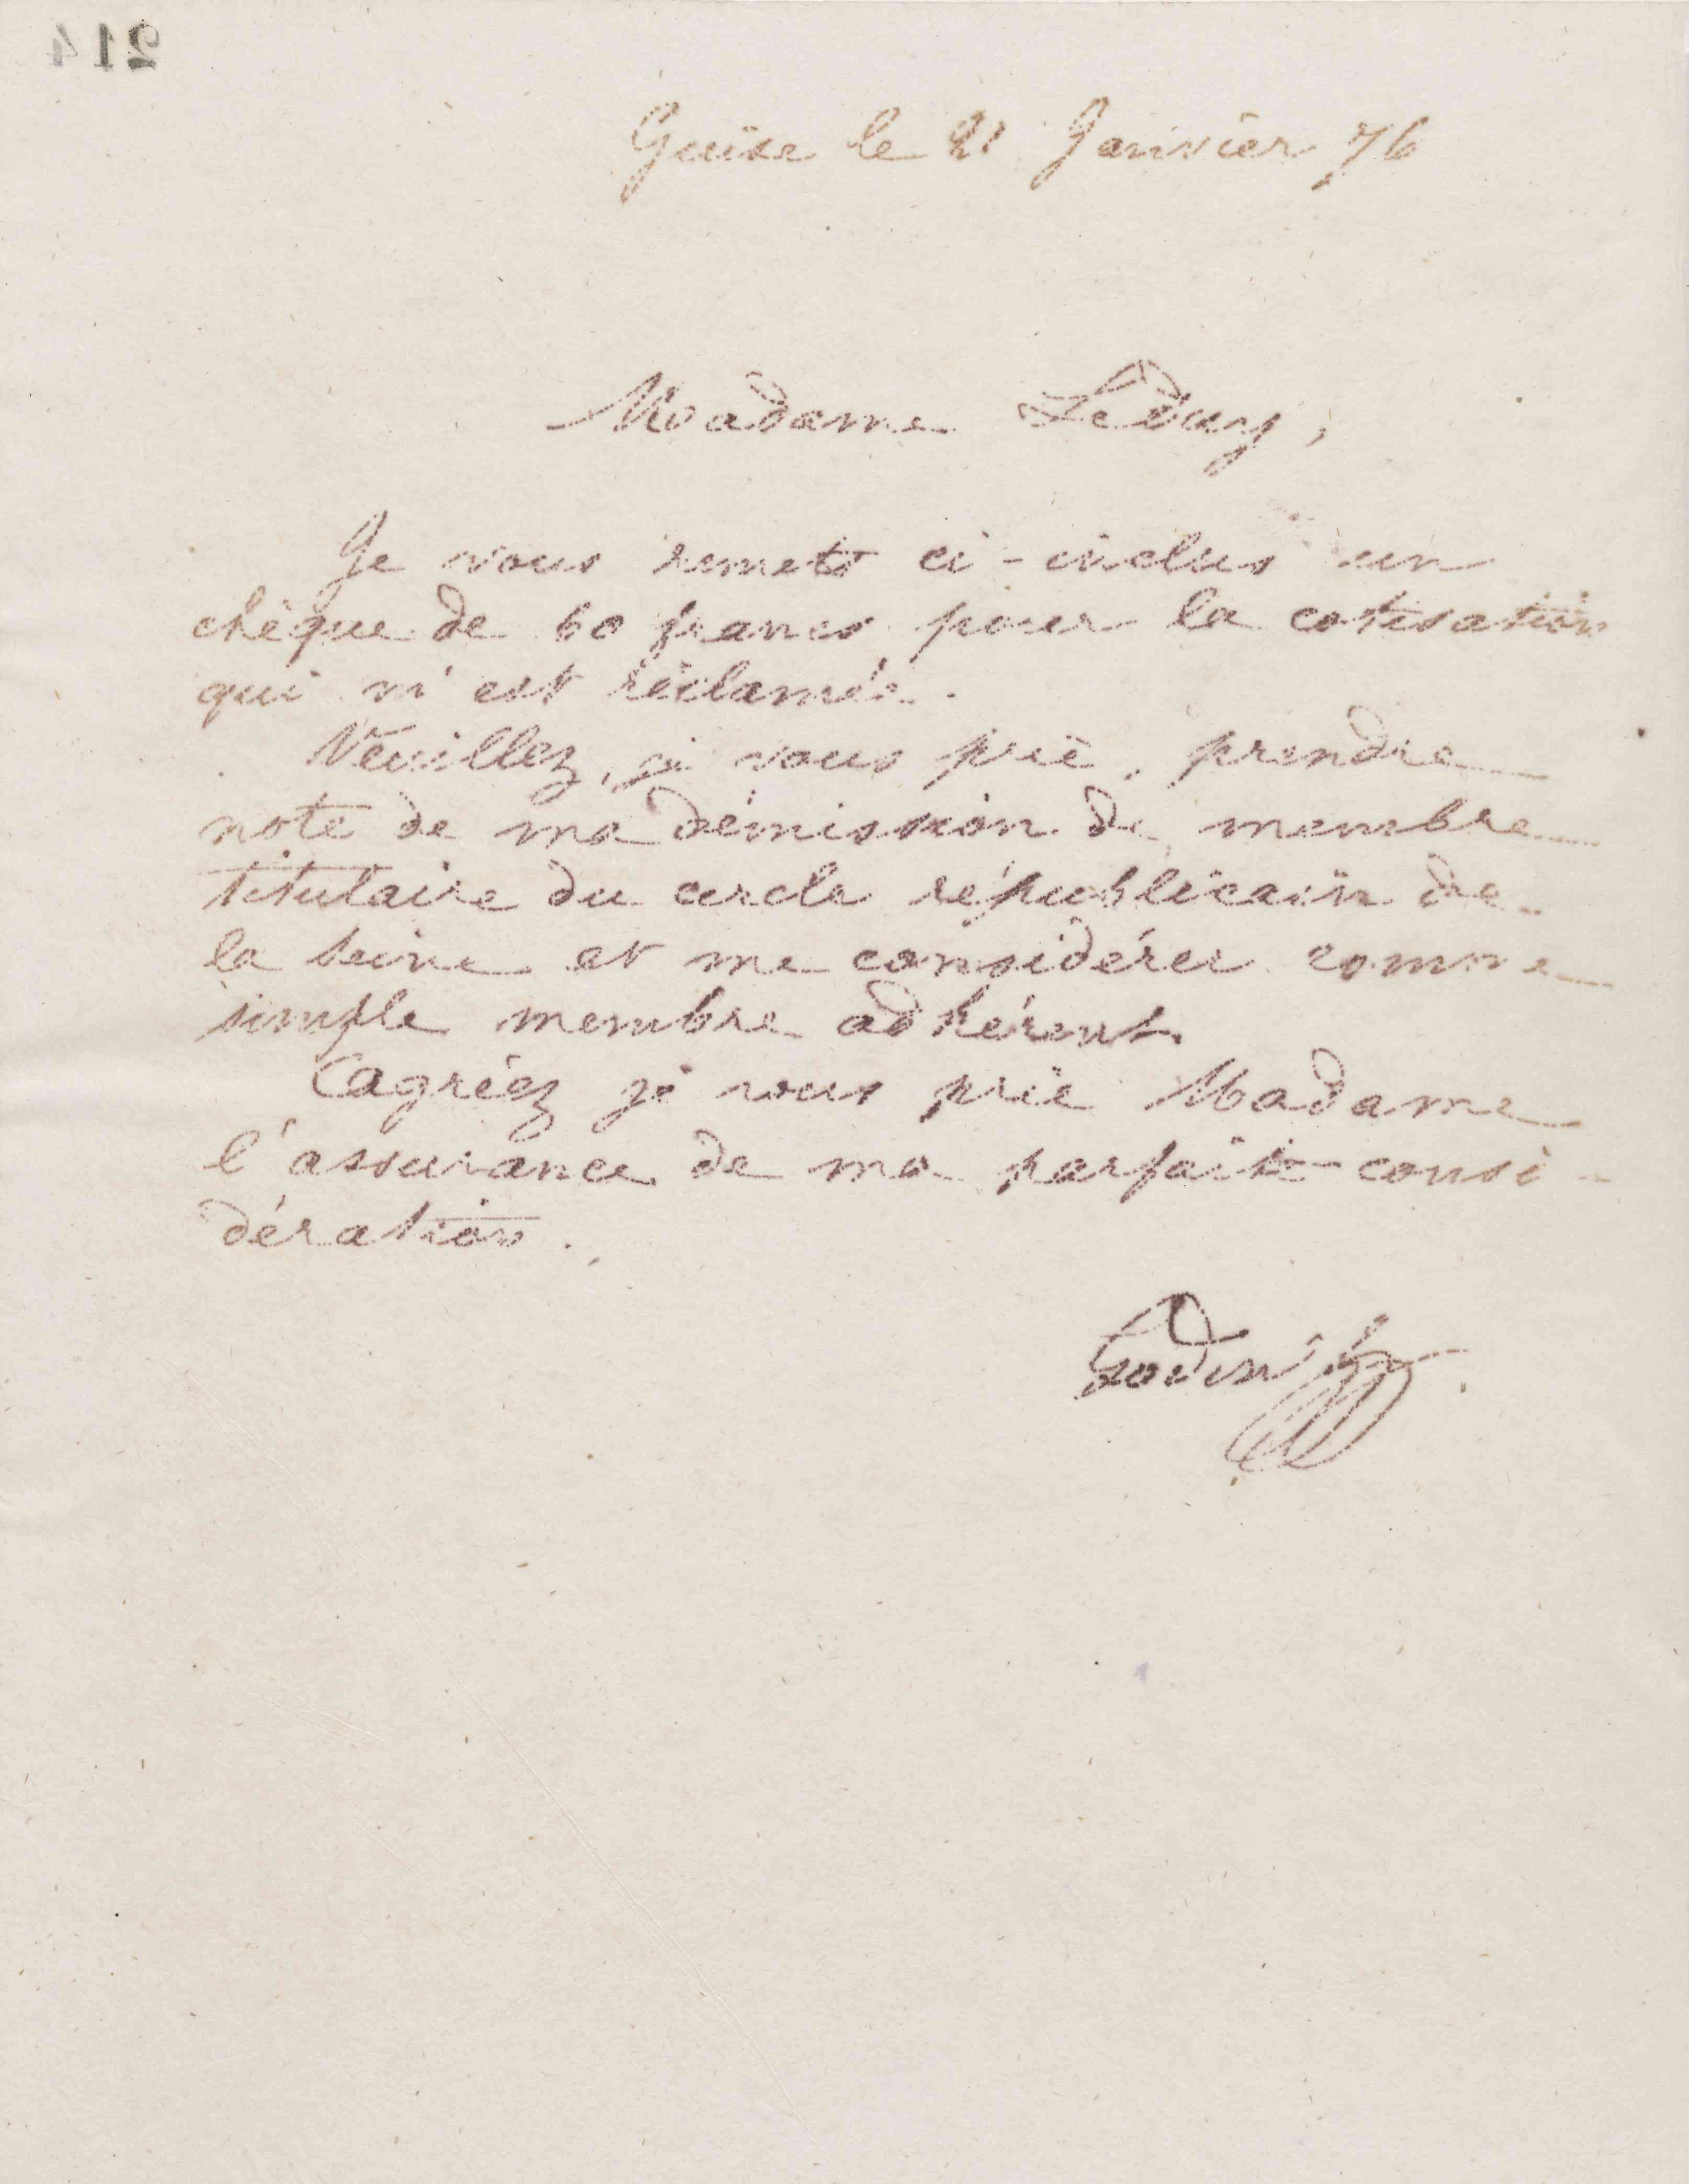 214
Guise le 21 Janvier 76
Madame Leduy,
Je vous remets ci-inclus un
chèque de 60 francs pour la cotisation
qui m'est réclamée.
Veuillez, je vous prie, prendre
note de ma démission de membre
titulaire du cercle républicain de
la Seine et me considérer comme
simple membre adhérent.
Cagréez je vous prie Madame
l'assurance de ma parfaite consi-
dération.
Godin